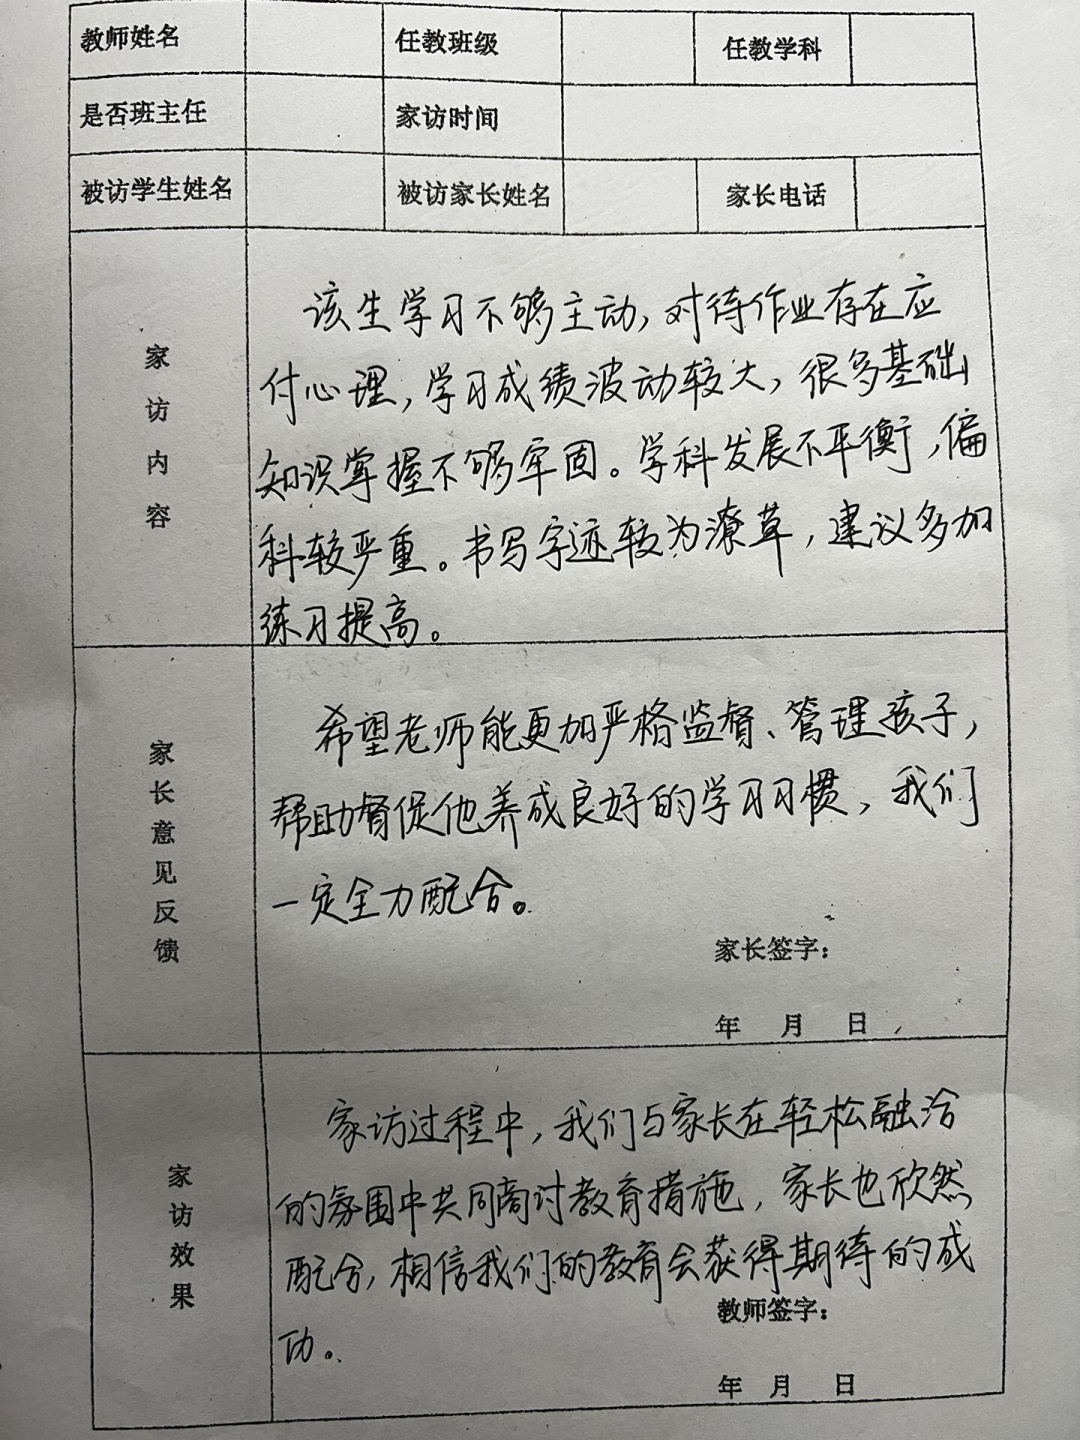 教师姓名 任教班级 任教学科
是否班主任 家访时间
被访学生姓名 被访家长姓名 家长电话
家访内容
该生学习不够主动，对待作业存在应
付心理，学习成绩波动较大，很多基础
知识掌握不够牢固。学科发展不平衡，偏
科较严重。书写字迹较为潦草，建议多加
练习提高。
家长意见反馈
希望老师能更加严格监督、管理孩子，
帮助督促他养成良好的学习习惯，我们
一定全力配合。
家长签字：
年 月 日
家访效果
家访过程中，我们与家长在轻松融洽
的氛围中共同商讨教育措施，家长也欣然
配合，相信我们的教育会获得期待的成
功。
教师签字：
年 月 日